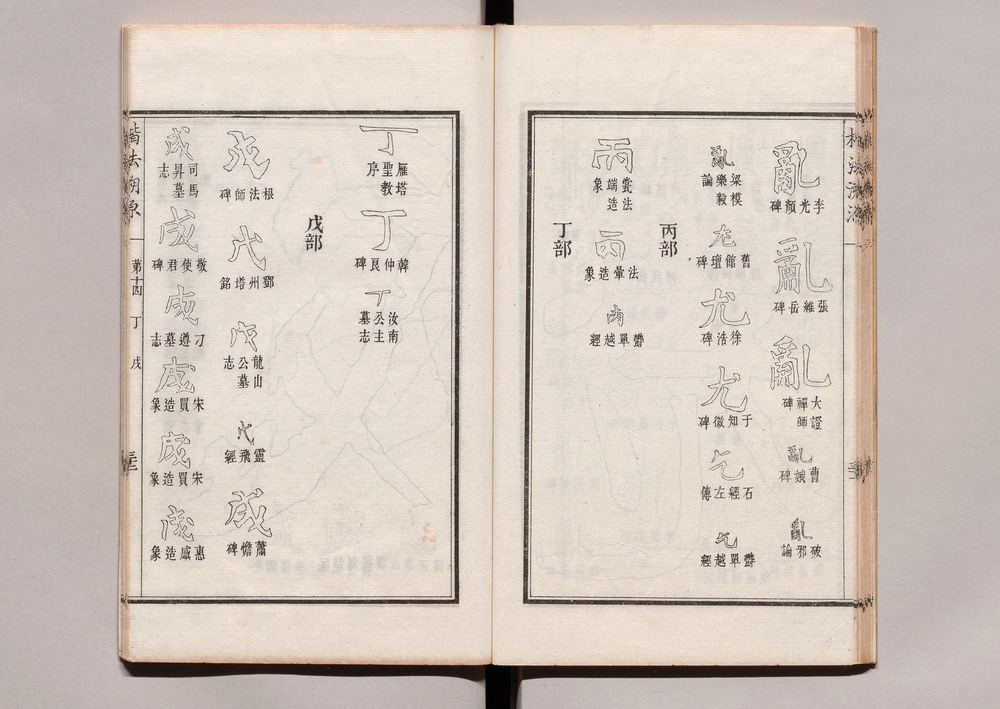 亂
李光顏碑
亂
張維岳碑
亂
大證禪師碑
亂
曹娥碑
亂
破邪論
亂
梁模樂毅論
尤
舊館壇碑
尤
徐浩碑
尤
于知微碑
乞
石經左傳
乞
鬱單越經
丙部
丙
雲法端造象
丙
法暈造象
丙
鬱單越經
丁部
丁
雁塔聖教序
丁
韓仲良碑
丁
汝南公主墓志
戊部
戊
根法師碑
戊
鄧州塔銘
戊
龍山公墓志
戊
靈飛經
成
蕭憺碑
成
司馬昇墓志
成
敬使君碑
成
刁遵墓志
成
宋買造象
成
宋買造象
成
惠感造象
楷法溯原
第十四
丁
戊